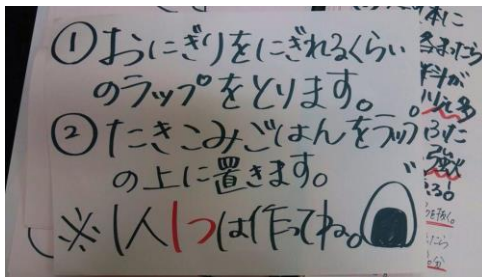 ①おにぎりをにぎれるくらい
のラップをとります。
②たきこみごはんをラップ
の上に置きます。
※1人1つは作ってね。
本に
料が